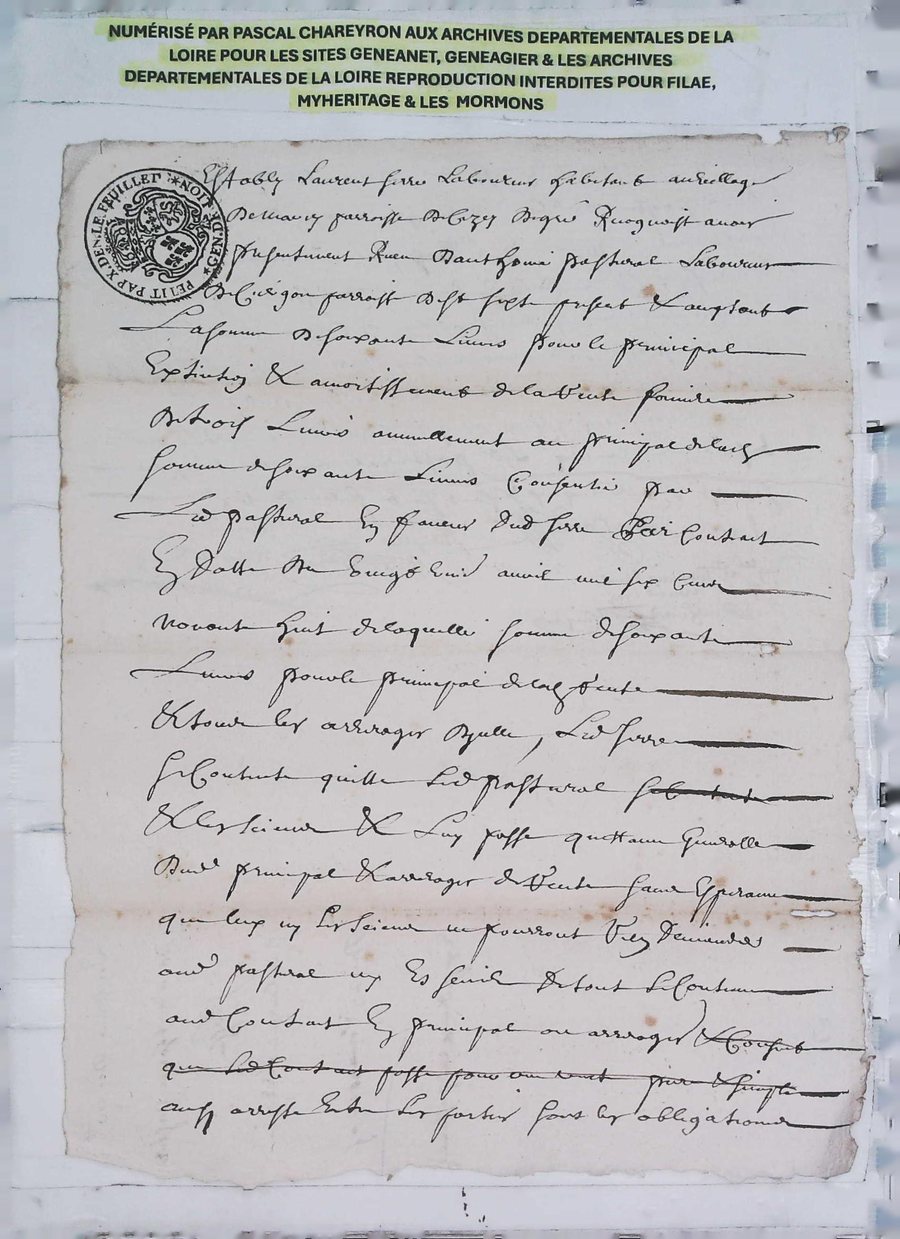 NUMÉRISÉ PAR PASCAL CHAREYRON AUX ARCHIVES DEPARTEMENTALES DE LA
LOIRE POUR LES SITES GENEANET, GENEAGIER & LES ARCHIVES
DEPARTEMENTALES DE LA LOIRE REPRODUCTION INTERDITES POUR FILAE,
MYHERITAGE & LES MORMONS
GEN.DE NOIR * PETIT PAP X DEN.LE FEUILLET *
Estably Laurent serre Laboureur habitant au village
parroisse de gré Recognoist avoir
presentement Receu pastural Laboureur
parroisse present & acceptant
La somme de soixante Livres pour le principal
Extinction & amortissement de la Rente fonciere
De trois Livres annuellement au principal de lad
somme de soixante Livres Consentie par
Led pastural En faveur dud serre par Contract
En Datte du avril mil six Cens
nonante huit de laquelle somme de soixante
Livres pour le principal de lad Rente
& tous les arrerages D'jcelle, Led serre
se Contente quitte Led pastural
& les siens & Luy passe quittance Generalle
Dud principal & arrerages de Rente
que luy ny Les siens ne pourront Rien Demander
aud pastural ny Es siens De tout le Contenu
aud Contract En principal ou arrerages & Consent
que Led Contract passe pour pure & simple
ainsy arresté Entre Les parties sous les obligations